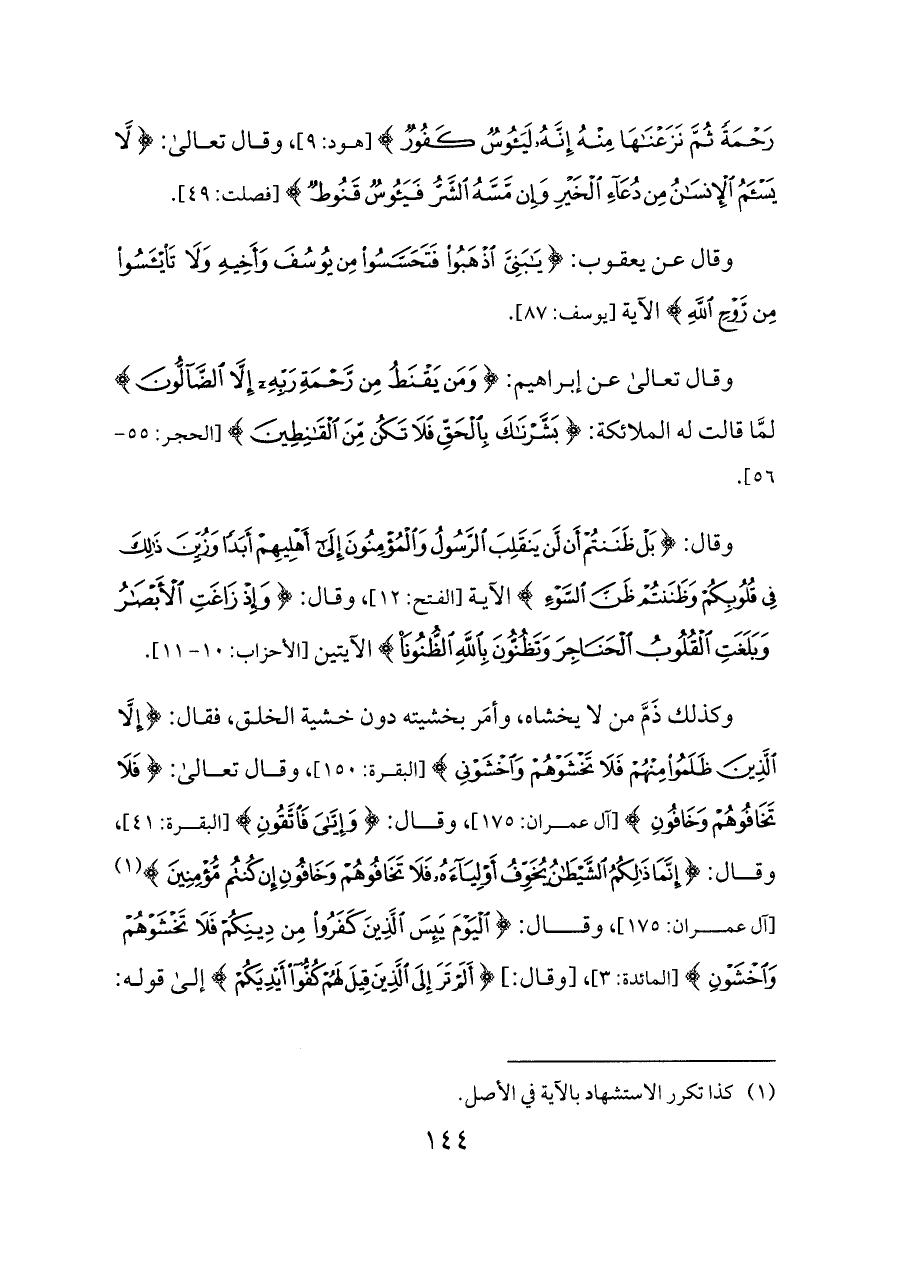 رَحْمَةً ثُمَّ نَزَعْنَٰهَا مِنْهُ إِنَّهُۥ لَيَـُٔوسٌ كَفُورٌ ﴾ [هود: ٩]، وقال تعالىٰ: ﴿ لَّا
يَسْـَٔمُ ٱلْإِنسَـٰنُ مِن دُعَآءِ ٱلْخَيْرِ وَإِن مَّسَّهُ ٱلشَّرُّ فَيَـُٔوسٌ قَنُوطٌ ﴾ [فصلت: ٤٩].
وقال عن يعقوب: ﴿ يَـٰبَنِىَّ ٱذْهَبُوا۟ فَتَحَسَّسُوا۟ مِن يُوسُفَ وَأَخِيهِ وَلَا تَا۟يْـَٔسُوا۟
مِن رَّوْحِ ٱللَّهِ ﴾ الآية [يوسف: ٨٧].
وقال تعالىٰ عن إبراهيم: ﴿ وَمَن يَقْنَطُ مِن رَّحْمَةِ رَبِّهِۦٓ إِلَّا ٱلضَّآلُّونَ ﴾
لمَّا قالت له الملائكة: ﴿ بَشَّرْنَـٰكَ بِٱلْحَقِّ فَلَا تَكُن مِّنَ ٱلْقَـٰنِطِينَ ﴾ [الحجر: ٥٥-
٥٦].
وقال: ﴿ بَلْ ظَنَنتُمْ أَن لَّن يَنقَلِبَ ٱلرَّسُولُ وَٱلْمُؤْمِنُونَ إِلَىٰٓ أَهْلِيهِمْ أَبَدًا وَزُيِّنَ ذَٰلِكَ
فِى قُلُوبِكُمْ وَظَنَنتُمْ ظَنَّ ٱلسَّوْءِ ﴾ الآية [الفتح: ١٢]، وقال: ﴿ وَإِذْ زَاغَتِ ٱلْأَبْصَـٰرُ
وَبَلَغَتِ ٱلْقُلُوبُ ٱلْحَنَاجِرَ وَتَظُنُّونَ بِٱللَّهِ ٱلظُّنُونَا۠ ﴾ الآيتين [الأحزاب: ١٠-١١].
وكذلك ذَمَّ من لا يخشاه، وأمَر بخشيته دون خشية الخلق، فقال: ﴿ إِلَّا
ٱلَّذِينَ ظَلَمُوا۟ مِنْهُمْ فَلَا تَخْشَوْهُمْ وَٱخْشَوْنِى ﴾ [البقرة: ١٥٠]، وقال تعالىٰ: ﴿ فَلَا
تَخَافُوهُمْ وَخَافُونِ ﴾ [آل عمران: ١٧٥]، وقال: ﴿ وَإِيَّـٰىَ فَٱتَّقُونِ ﴾ [البقرة: ٤١]،
وقال: ﴿ إِنَّمَا ذَٰلِكُمُ ٱلشَّيْطَـٰنُ يُخَوِّفُ أَوْلِيَآءَهُۥ فَلَا تَخَافُوهُمْ وَخَافُونِ إِن كُنتُم مُّؤْمِنِينَ ﴾(١)
[آل عمران: ١٧٥]، وقال: ﴿ ٱلْيَوْمَ يَئِسَ ٱلَّذِينَ كَفَرُوا۟ مِن دِينِكُمْ فَلَا تَخْشَوْهُمْ
وَٱخْشَوْنِ ﴾ [المائدة: ٣]، [وقال:] ﴿ أَلَمْ تَرَ إِلَى ٱلَّذِينَ قِيلَ لَهُمْ كُفُّوٓا۟ أَيْدِيَكُمْ ﴾ إلىٰ قوله:
(١) كذا تكرر الاستشهاد بالآية في الأصل.
١٤٤